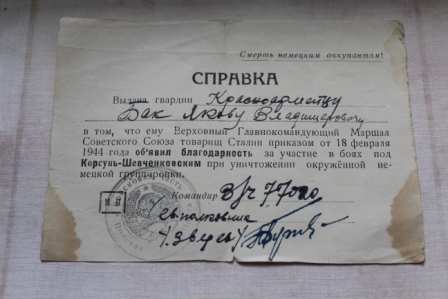 Смерть немецким оккупантам!
СПРАВКА
Выдана гвардии Красноармейцу
Бак Якову Владимировичу
в том, что ему Верховный Главнокомандующий Маршал
Советского Союза товарищ Сталин приказом от 18 февраля
1944 года об'явил благодарность за участие в боях под
Корсунь-Шевченковским при уничтожении окружённой не-
мецкой группировки.
Командир В/ч 77020
М П